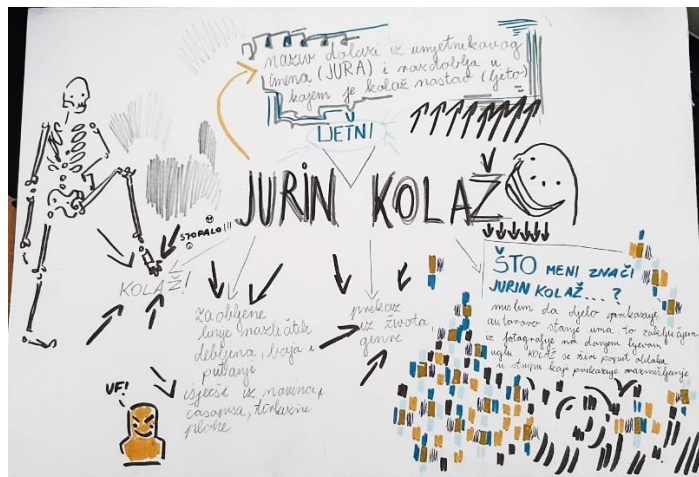 naziv dolazi iz umjetnikovog
imena (JURA) i razdoblja u
kojem je kolaž nastao (ljeto)
LJETNI
JURIN KOLAŽ
STOPALO!!!
KOLAŽ!
zaobljene
linije različitih
debljina, boja i
putanji
isječci iz novina,
časopisa,
plohe
prikaz
iz života,
genre
UF!
ŠTO MENI ZNAČI
JURIN KOLAŽ...?
mislim da djelo prikazuje
autorovo stanje uma, to zaključujem
iz fotografije na donjem lijevom
uglu. KOLAŽ se širi poput oblaka
u stripu koji prikazuje razmišljanje